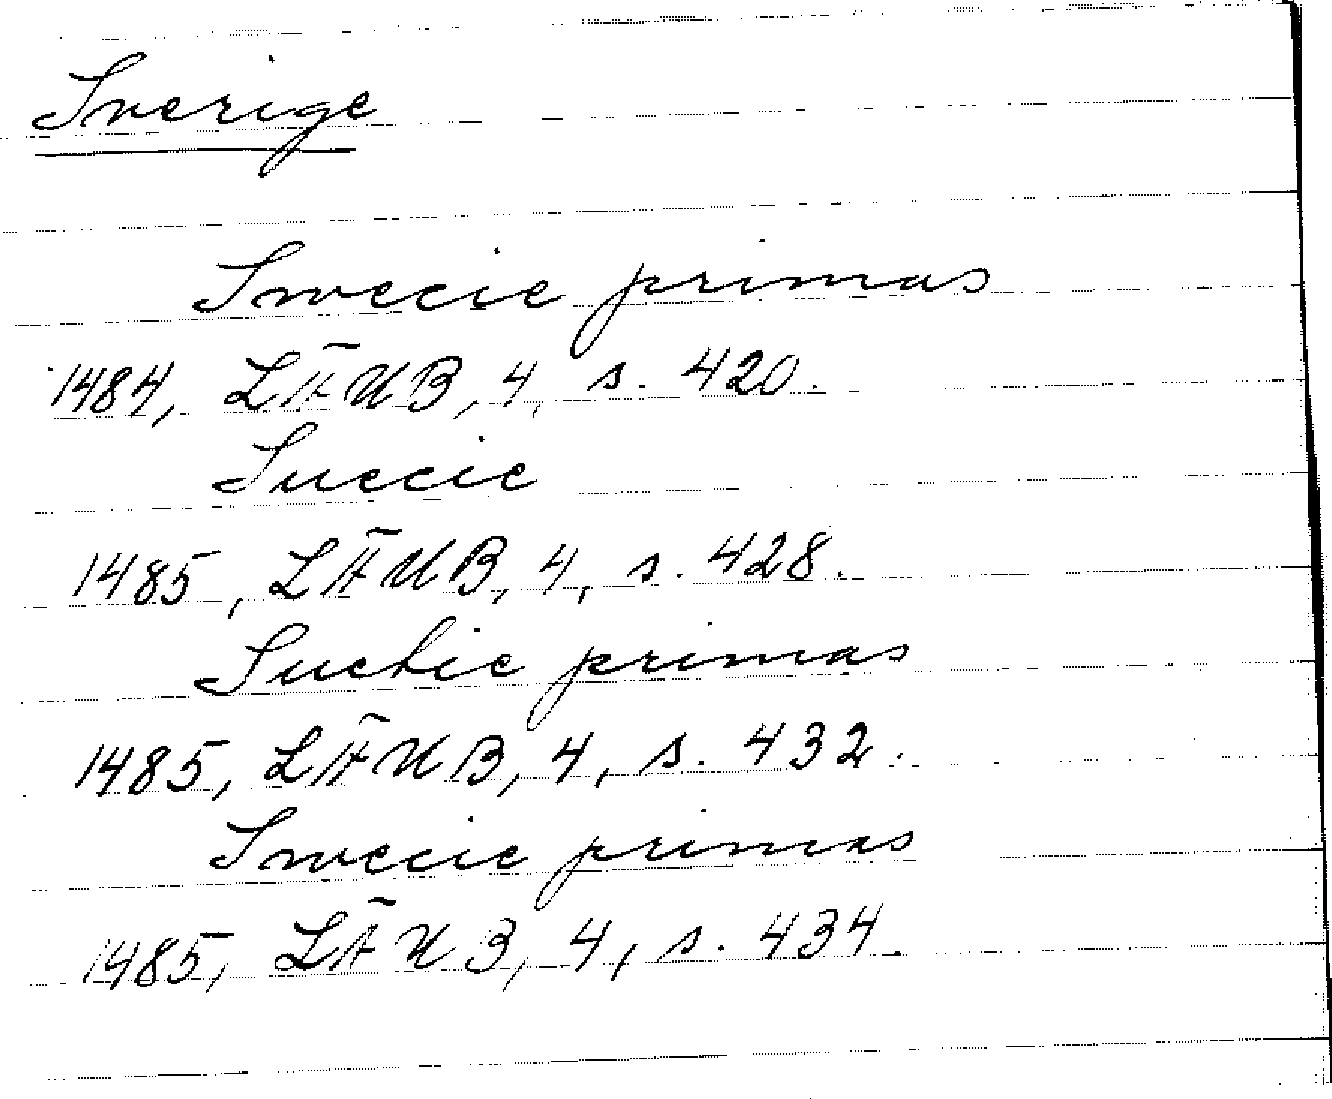 Sverige
Swecie primas
1484, LÄUB, 4, s. 420.
Suecie
1485, LÄUB, 4, s. 428.
Suetie primas
1485, LÄUB, 4, s. 432.
Swecie primas
1485, LÄUB, 4, s. 434.